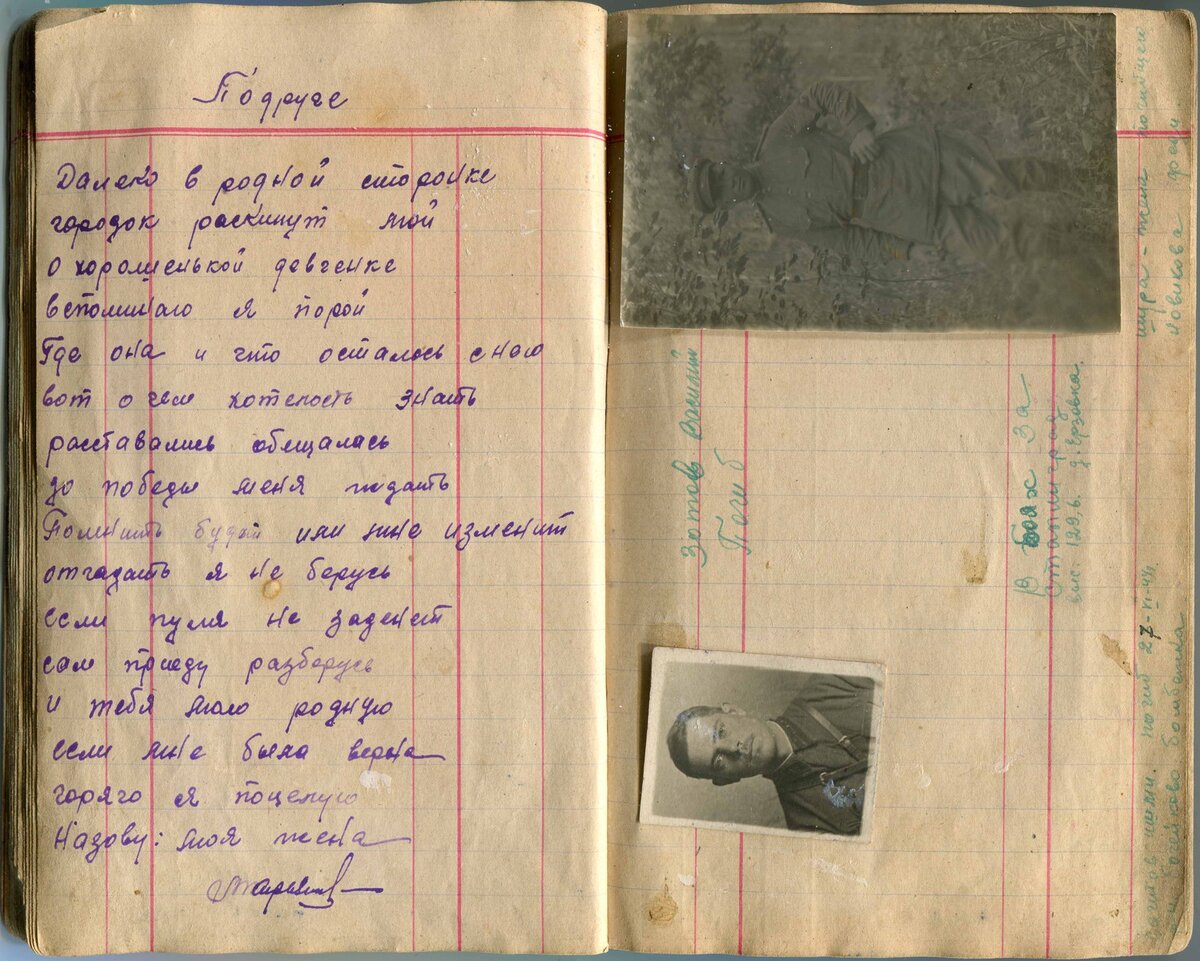 Подруге
Далеко в родной сторонке
городок раскинут мой
о хорошенькой девченке
вспоминаю я порой
Где она и что осталось сною
вот о чем хотелость знать
расставались обещалась
до победы меня ждать
Помнить будет или мне изменит
отгадать я не берусь
если пуля не заденет
сам приеду разберусь
и тебя мою родную
если мне была верна
горяго я поцелую
Назову: моя жена
Зотов Василий
Погиб
В боях за
Сталинград
выс. 129,6. д. Ерзовка.
Шура - жена
Новикова
погиб 27-XI-44